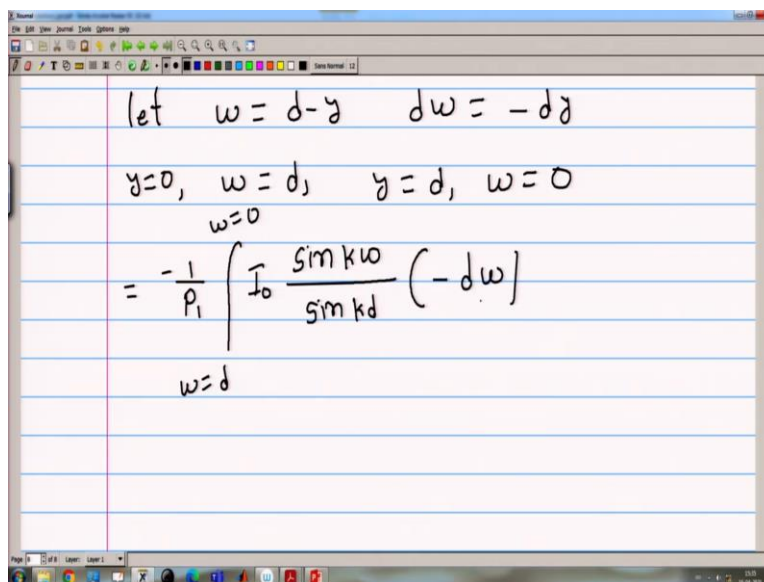 Xournal
File Edit View Journal Tools Options Help
Sans Normal 12
let w = d-y dw = -dy
y=0, w = d, y = d, w = 0
w=0
= -1/P₁ ∫ I₀ sin kw / sin kd (-dw)
w=d
Page 8 of 8 Layer: Layer 1